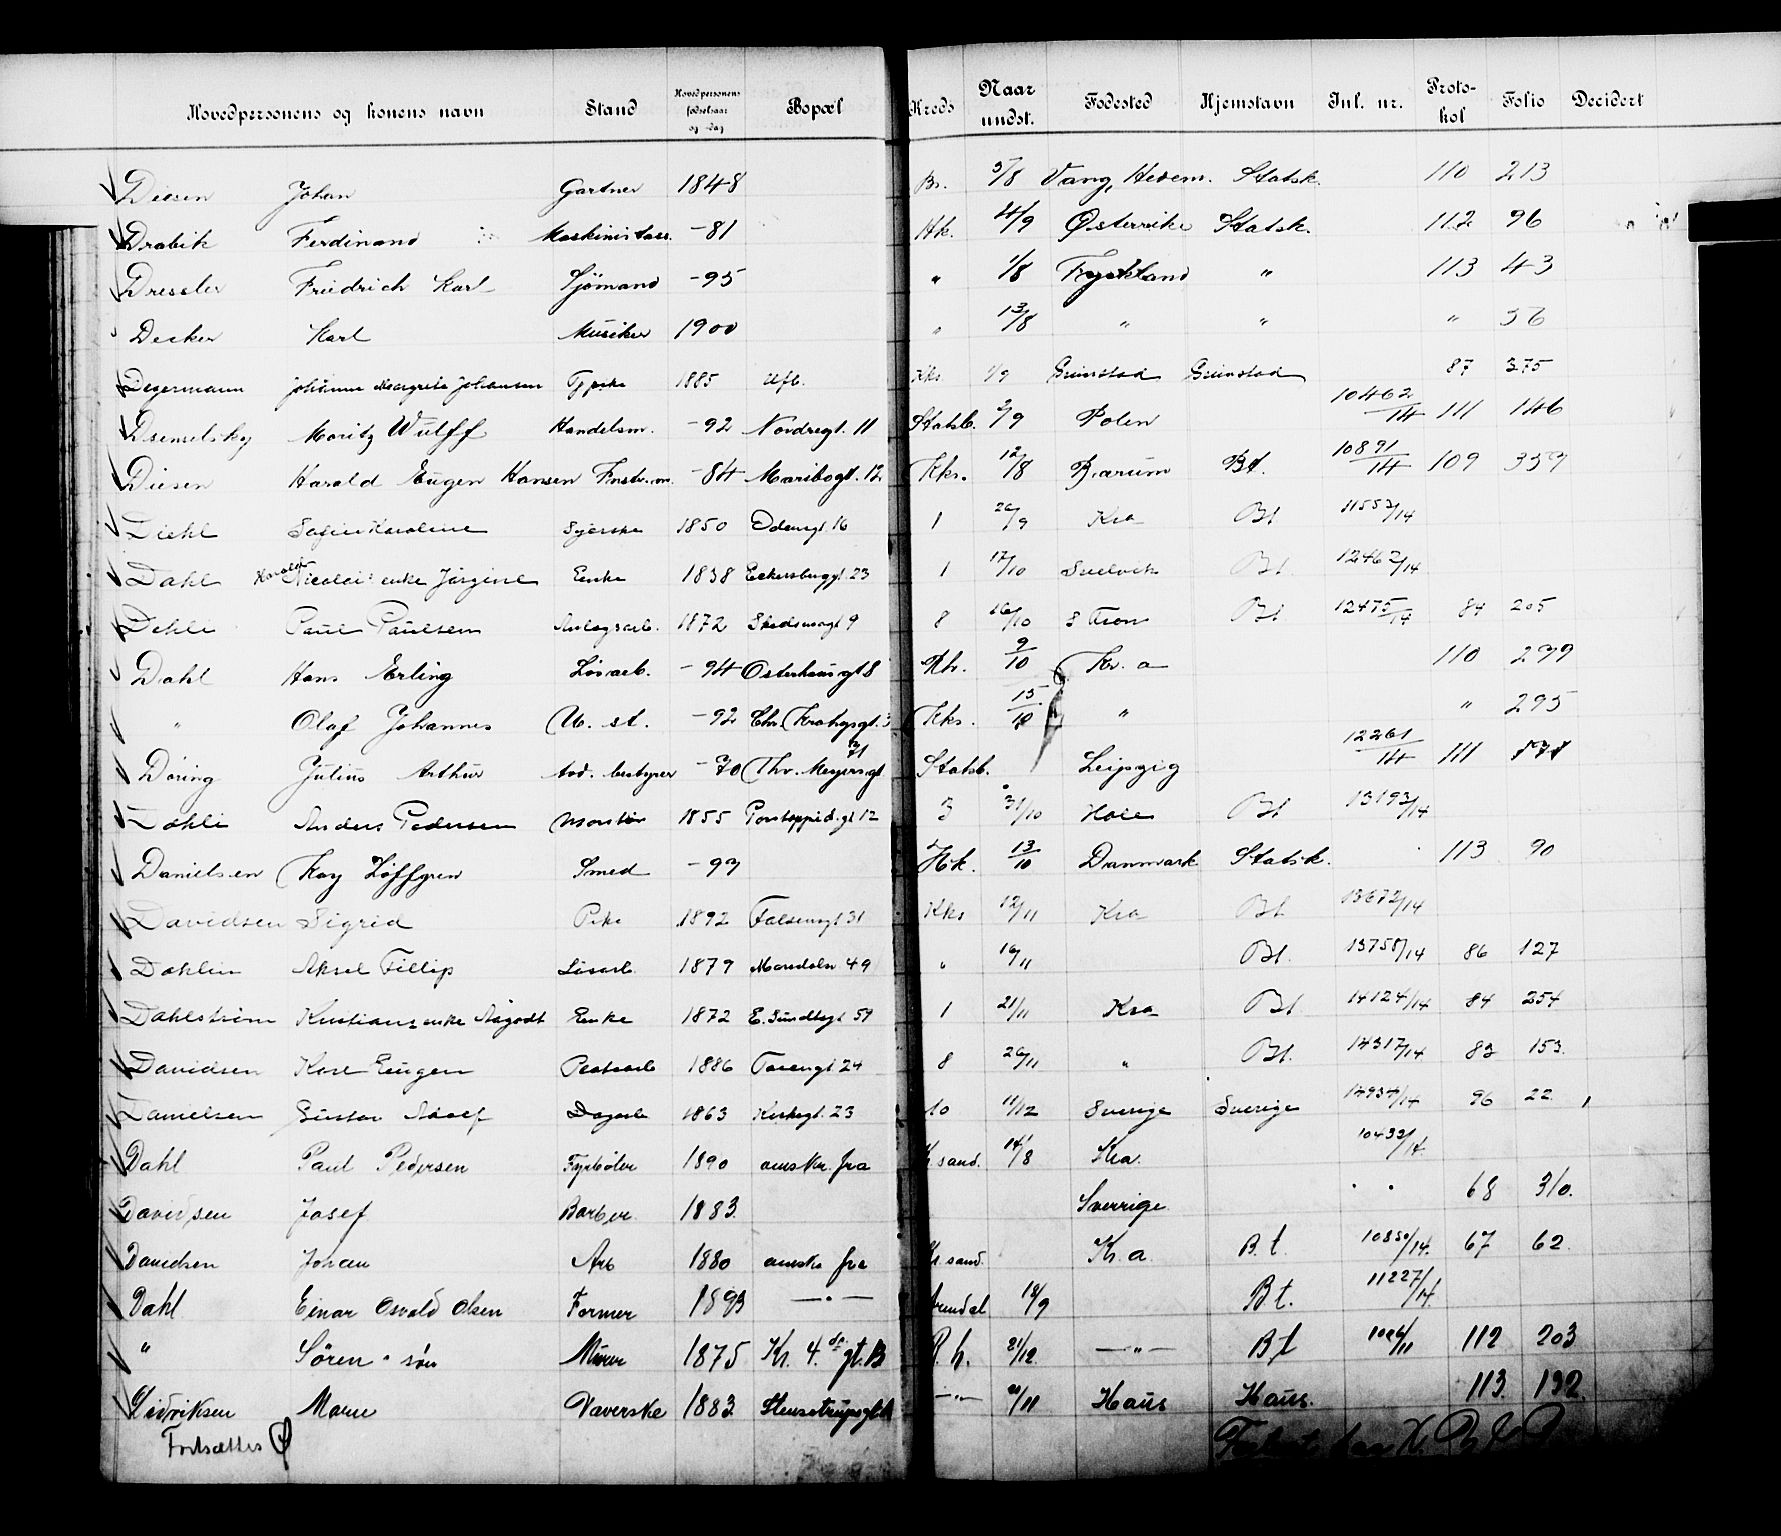 Hovedpersonens og konens navn Stand Hovedpersonens fødselsaar og -dag Bopæl Kreds Naar undst. Fødested Hjemstavn Jnl. nr. Protokol Folio Decidert
Diesen Johan Gartner 1848 Br. 5/8 Vang, Hedem. Statsk. 110 213
Drabik Ferdinand Maskinistass. -81 Hk. 4/9 Østerrike Statsk. 112 96
Dressler Friedrich Karl Sjömand -95 " 1/8 Tyskland " 113 43
Decker Karl Musiker 1900 " 13/8 " " " 56
Degermann Johanne Margrete Johansen Tjpike 1885 Ufb. Kks 1/9 Grimstad Grimstad 87 375
Dsemelsky Moritz Wulff Handelsm. -92 Nordregt. 11 Statsb. 2/9 Polen 10462/14 111 146
Diesen Harald Eugen Hansen -84 Maribogt. 12 Kks. 12/8 Bærum Bt. 10891/14 109 359
Diehl Sofie Karoline Syerske 1850 Odensgt 16 1 26/9 Kra Bt 11553/14
Dahl Harald Nicolai's enke Jørgine Enke 1838 Eckersbergt 23 1 17/10 Svelvik Bt. 12462/14
Dehli Paul Paulsen Anlegsarb. 1872 9 8 16/10 S Fron Bt 12475/14 84 205
Dahl Hans Erling Løsarb. -94 Osterhausgt 8 Rh. 9/10 Kr. a 110 299
" Olaf Johannes U. st. -92 Chr. Krohgsgt. 3 Kks. 15/10 " " 295
Döring Julius Arthur Avd. bestyrer -70 Thv. Meyersgt 71 Statsb. Leipzig 12261/14 111
Dæhli Anders Pedersen Montör 1855 Pontoppid.gt 12 3 31/10 Hole Bt 13193/14
Danielsen Kay Löffgren Smed -93 Hk. 13/10 Danmark Statsk. 113 90
Davidsen Sigrid Pike 1892 Falsensgt 31 Kks 12/11 Kra Bt 13672/14
Dahlin Aksel Fillip Løsarb 1879 Maridalsv 49 " 16/11 Bt. 13758/14 86 127
Dahlstrøm Kristians enke Aagodt Enke 1872 E. Sundtsgt 59 1 21/11 Kra Bt 14124/14 84 254
Davidsen Karl Eugen 1886 Torengt 24 8 26/11 " Bt. 14317/14 83 153.
Danielsen Gustav Adolf Dagarb 1863 Kirkegt. 23 10 11/12 Sverige Sverige 14934/14 96 22
Dahl Paul Pedersen Fyrbøter 1890 ønskr. fra Kr. sand. 14/8 Kra. 10433/14.
Davidsen Josef Barber 1883. Sverrige 68 310.
Davidsen Johan Arb 1880 ønskr fra Kr. sand. Kr. a. B. t. 10850/14. 67 62.
Dahl Einar Osvald Olsen Former 1893 — " — Arendal 18/9 Bt. 11227/14.
" Sören " søn Murer 1875 Kr. 4. gt. B R. h. 21/12 — " — Bt 112 203
Didriksen Marie Væverske 1883. Stensstrupsgt R — " — /11 Haus Haus. 113. 192.
Fortsættes